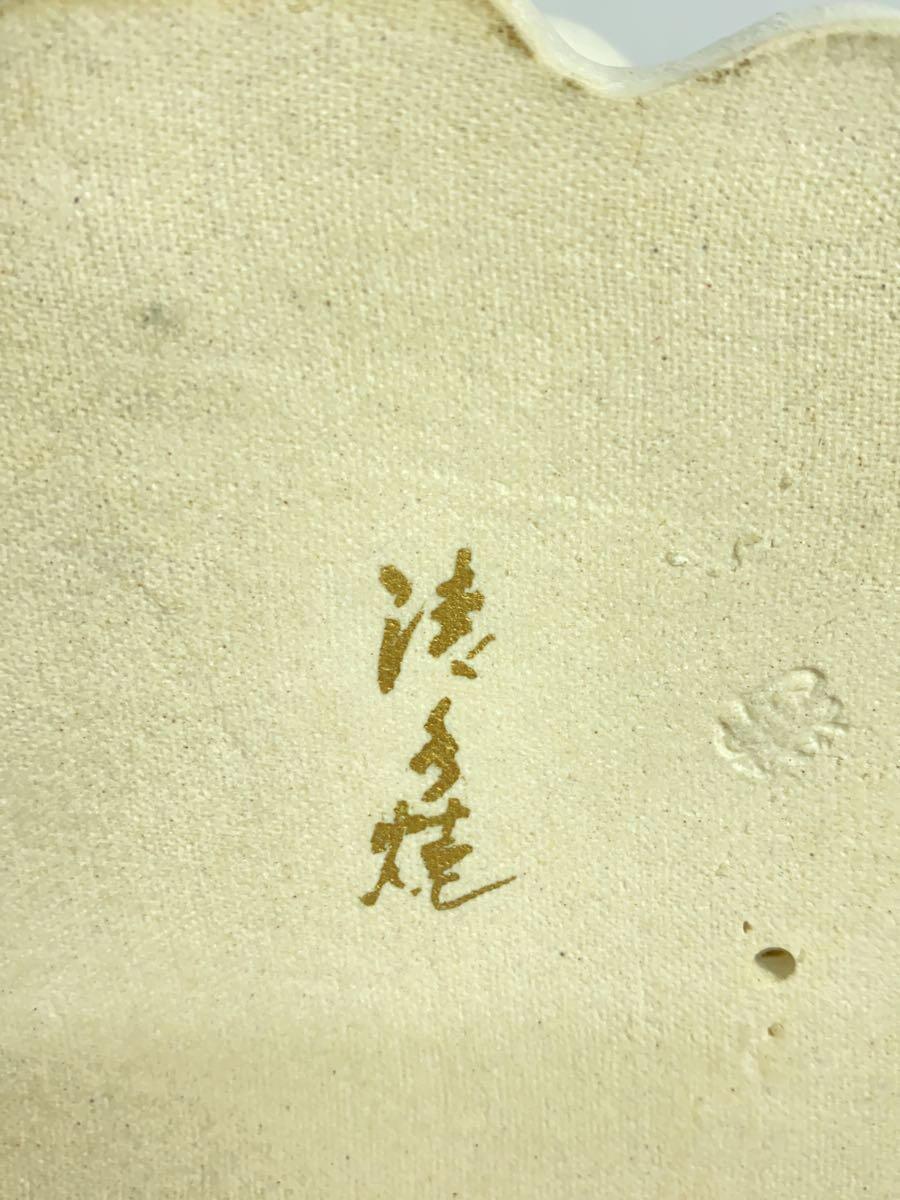 清水焼